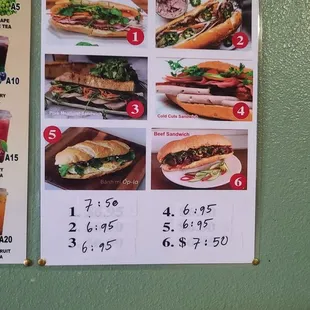 A5
APE
TEA
A10
RY
A15
A20
RUIT
1
2
3
Cold Cuts Sandwich
4
5
Beef Sandwich
6
1 7:50
2 6:95
3 6:95
4. 6:95
5. 6:95
6. $ 7:50